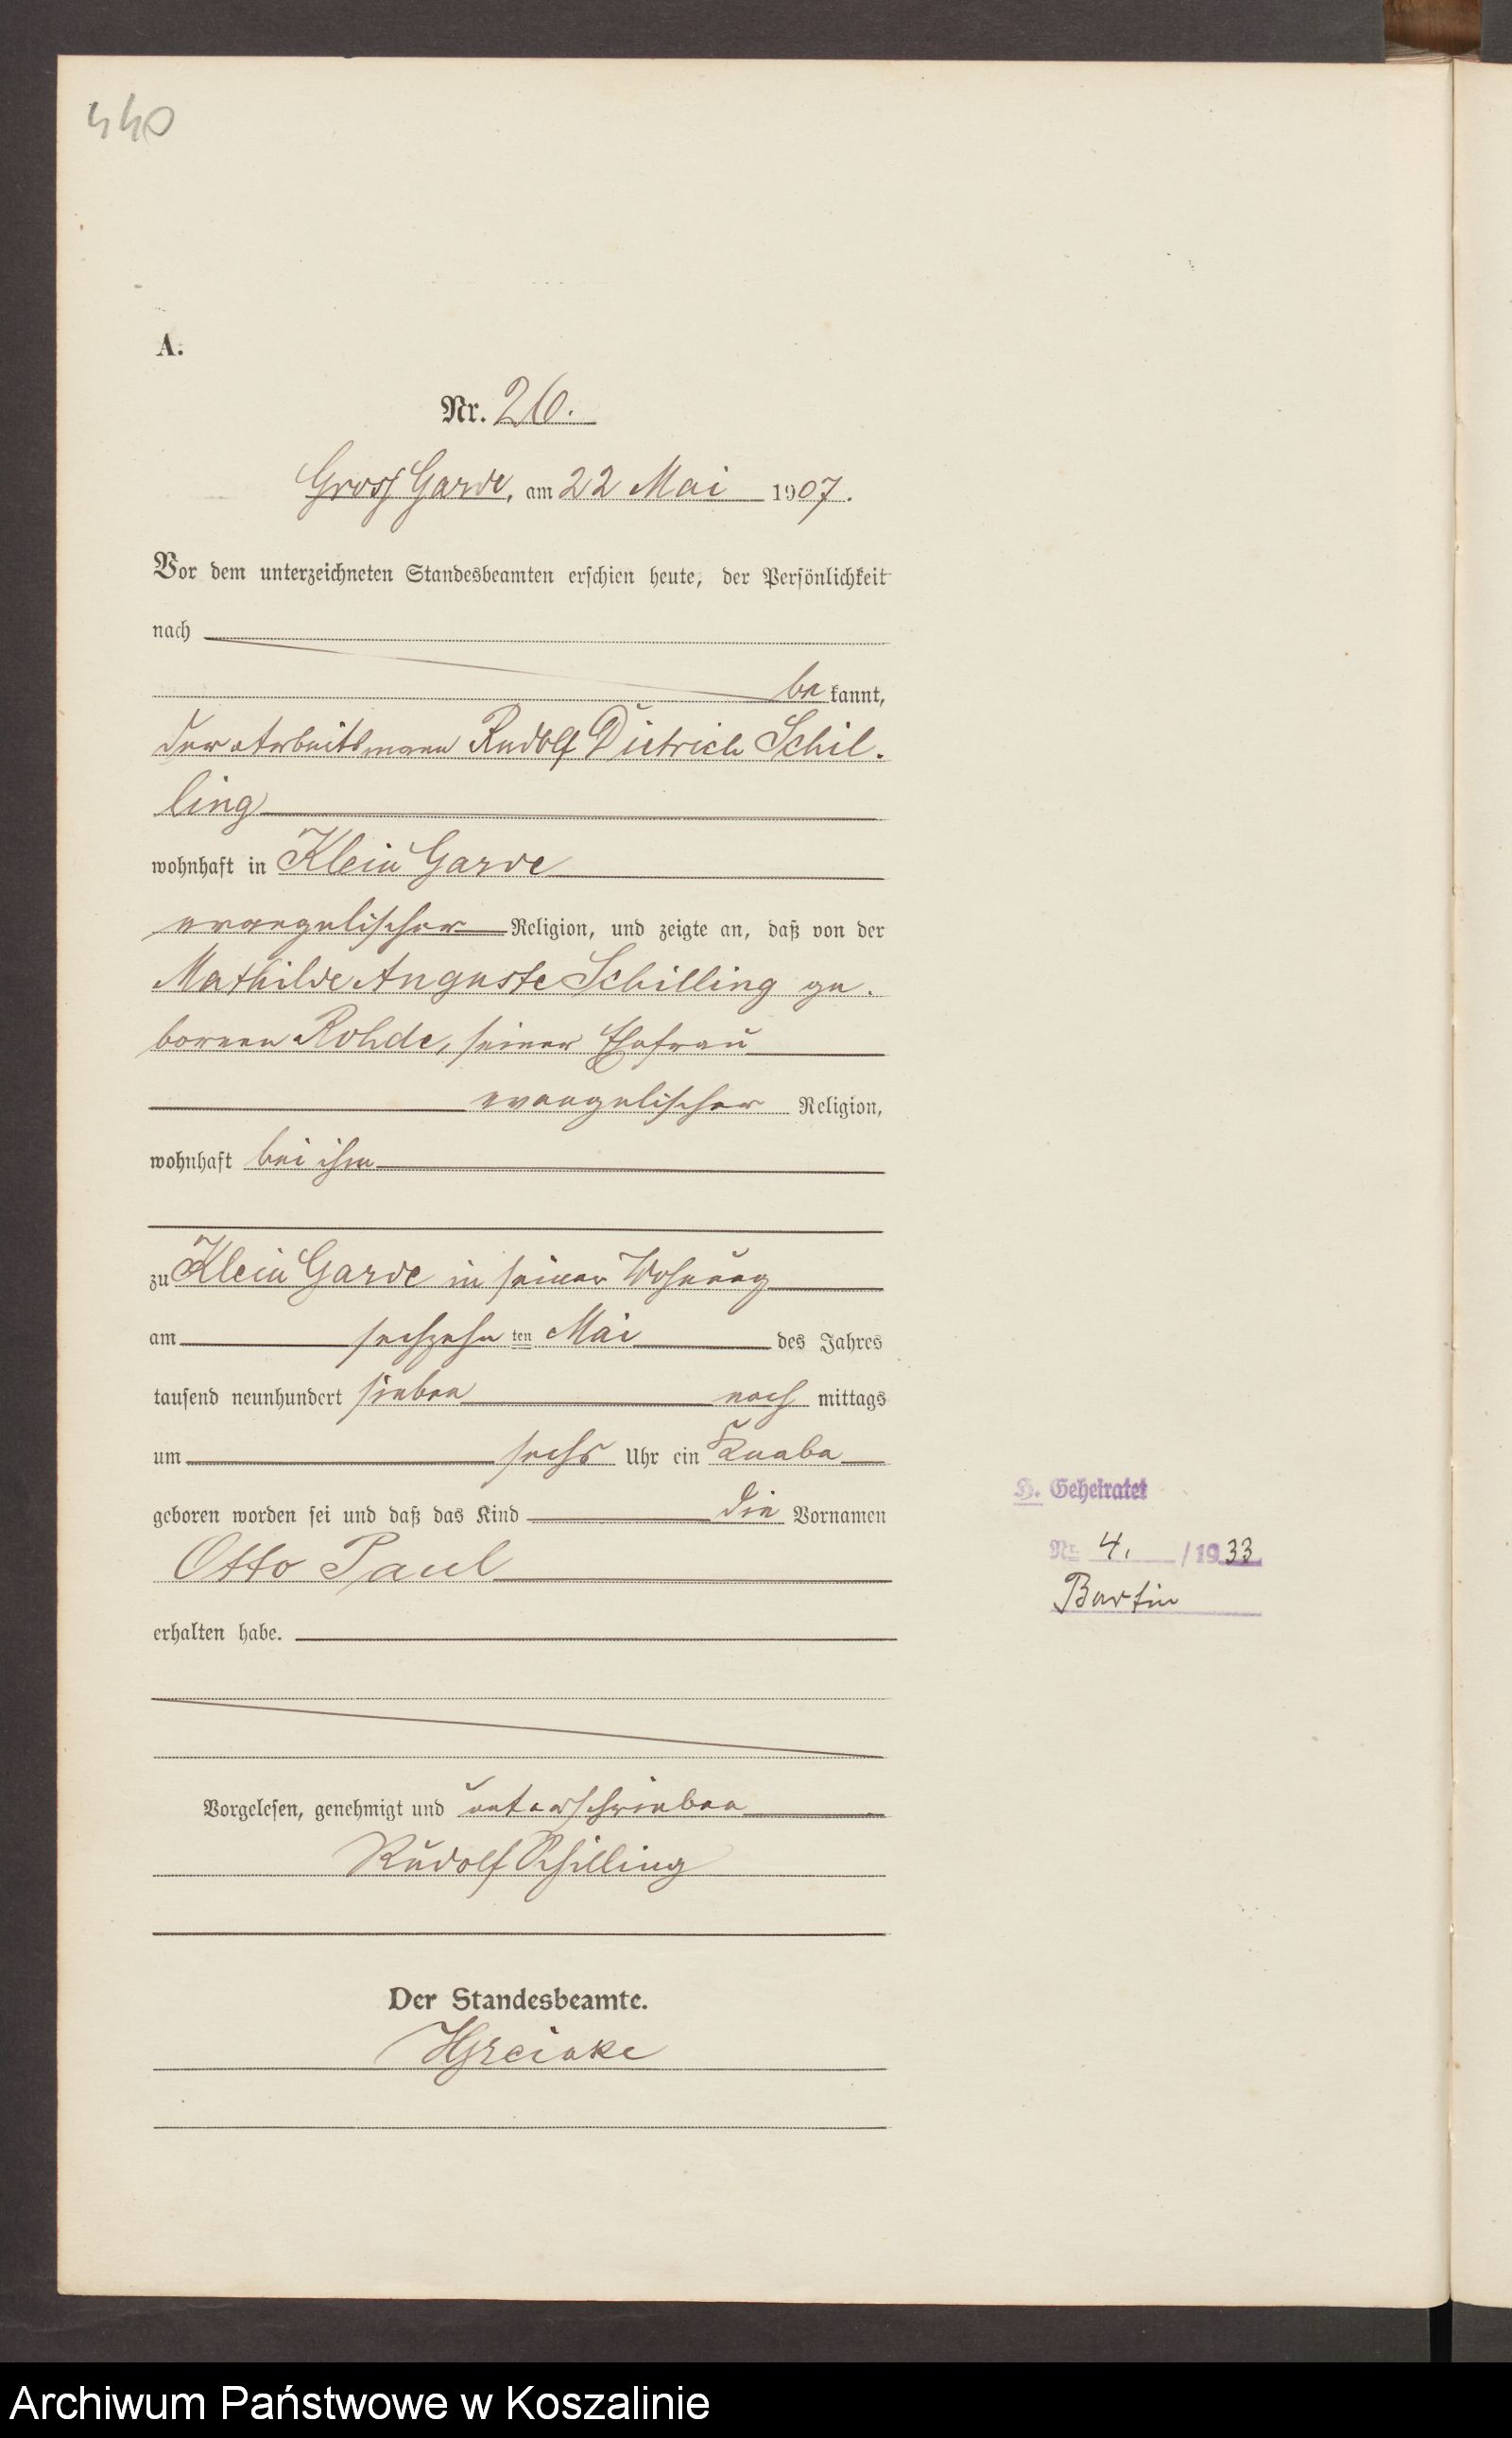 440
A.
Nr. 26.
Gross Garde, am 22 Mai 1907.
Vor dem unterzeichneten Standesbeamten erschien heute, der Persönlichkeit
nach
be kannt,
der Arbeitsmann Rudolf Dietrich Schil-
ling
wohnhaft in Klein Garde
evangelischer Religion, und zeigte an, daß von der
Mathilde Auguste Schilling ge-
borenen Rohde, seiner Ehefrau
evangelischer Religion,
wohnhaft bei ihm
zu Klein Garde in seiner Wohnung
am sechzehn ten Mai des Jahres
tausend neunhundert sieben nach mittags
um sechs Uhr ein Knabe
geboren worden sei und daß das Kind die Vornamen
H. Geheiratet
Otto Paul
Nr. 4. / 1933
Bartin
erhalten habe.
Vorgelesen, genehmigt und unterschrieben
Rudolf Schilling
Der Standesbeamte.
Archiwum Państwowe w Koszalinie